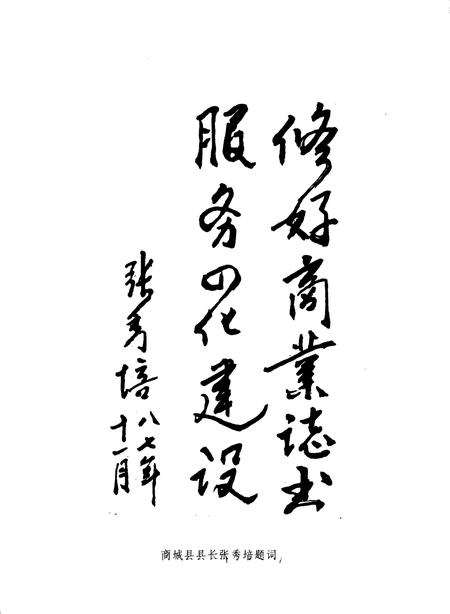 修好商業誌书
服务四化建设
张秀培
八七年
十一月
商城县县长张秀培题词